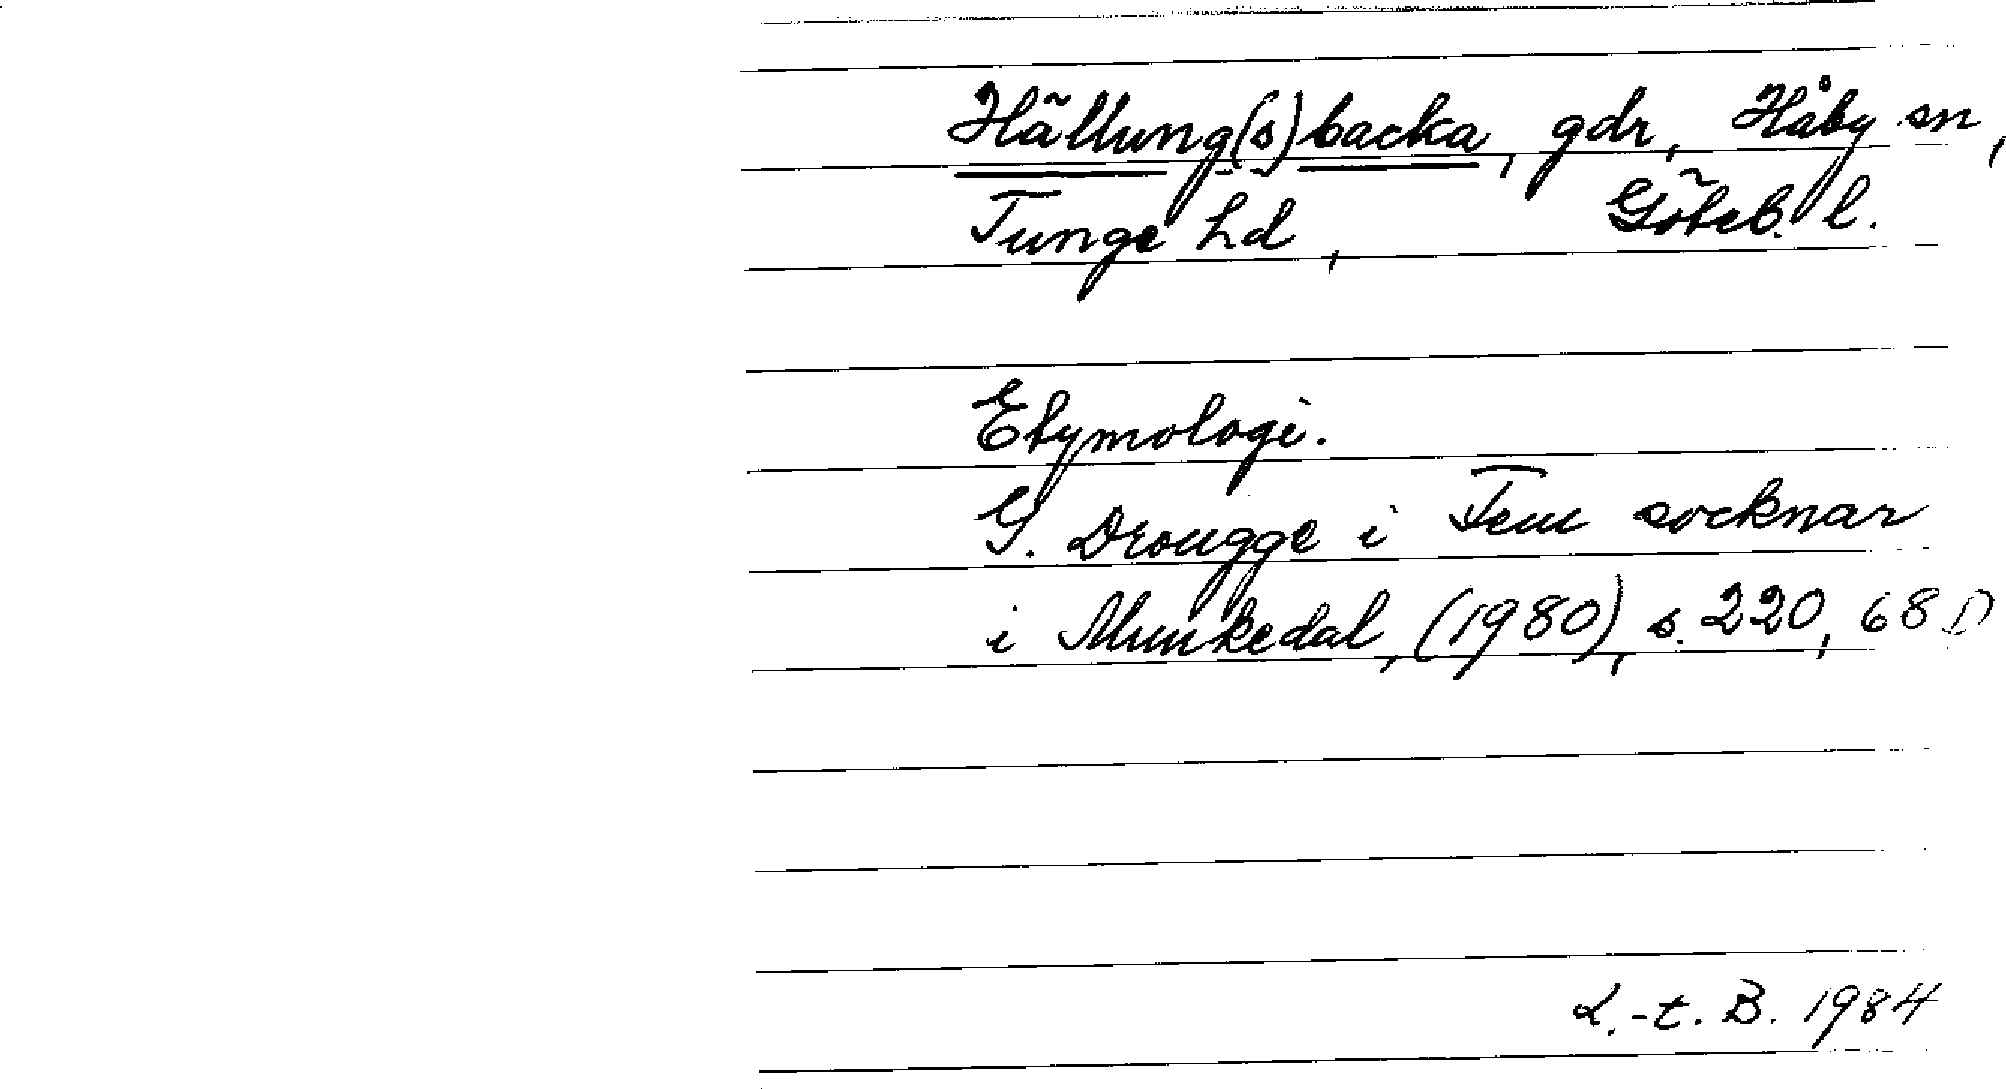 Hällung(s)backa, gdr, Håby sn,
Tunge hd, Göteb. l.
Etymologi.
G. Drougge i Fem socknar
i Munkedal, (1980), s. 220, 68 D
L.-t. B. 1984